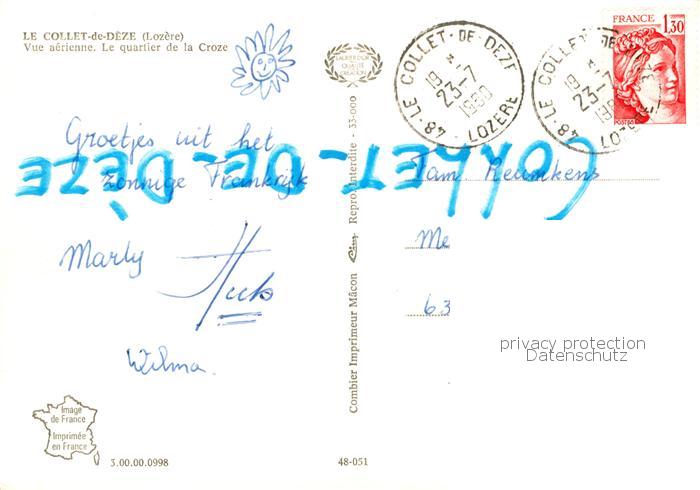 LE COLLET-de-DÈZE (Lozère)
Vue aérienne. Le quartier de la Croze
LABEUR D'OR
QUALITÉ
CREATION
48 - LE COLLET-DE-DEZE
19 H
23-7
1980
LOZERE
48 - LE COLLET-DE
19 H
23-7
198
LOZERE
FRANCE
1,30
POSTES
Groetjes uit het
zonnige Frankrijk
Marly
Huub
Wilma.
COLLET-DE-DÈZE
Combier Imprimeur Mâcon Repro. Interdite - 33-000
Fam Reumkens
Me
63
privacy protection
Datenschutz
Image
de France
Imprimée
en France
3.00.00.0998
48-051